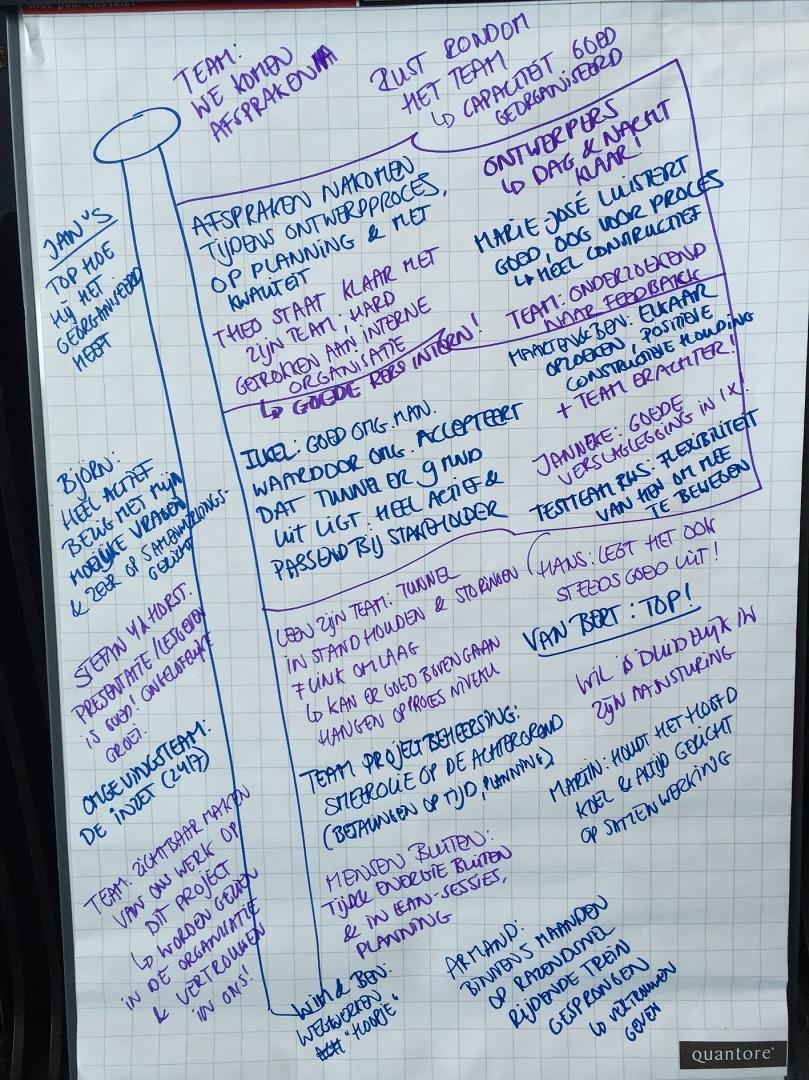 TEAM:
WE KOMEN
AFSPRAKEN NA
RUST RONDOM
HET TEAM
↳ CAPACITEIT GOED
GEORGANISEERD
ONTWERPERS
↳ DAG & NACHT
KLAAR!
AFSPRAKEN NAKOMEN
TIJDENS ONTWERPPROCES,
OP PLANNING & MET
KWALITEIT
MARIE JOSÉ LUISTERT
GOED, OOG VOOR PROCES
↳ HEEL CONSTRUCTIEF
JAN'S
TOP HOE
HIJ HET
GEORGANISEERD
HEEFT
THEO STAAT KLAAR MET
ZIJN TEAM; HARD
GETROKKEN AAN INTERNE
ORGANISATIE
↳ GOEDE REIS INTERN!
TEAM: ONDERZOEKEND
NAAR FEEDBACK
MAARTEN & BEN: ELKAAR
OPZOEKEN, POSITIEVE
CONSTRUCTIEVE HOUDING
+ TEAM ERACHTER!
JANNEKE: GOEDE
VERSLAGLEGGING IN 1X!
TESTTEAM RWS: FLEXIBILITEIT
VAN HEN OM MEE
TE BEWEGEN
: GOED OMG. MAN.
WAARDOOR OMG. ACCEPTEERT
DAT TUNNEL ER 9 MND
UIT LIGT: HEEL ACTIEF &
PASSEND BIJ STAKEHOLDER
BJÖRN:
HEEL ACTIEF
BEZIG MET MIJN
MOEILIJKE VRAGEN
& ZEER OP SAMENWERKINGS-
GERICHT
HANS: LEGT HET OOK
STEEDS GOED UIT!
LEEN ZIJN TEAM: TUNNEL
IN STAND HOUDEN & STORINGEN
FLINK OMLAAG
↳ KAN ER GOED BOVEN GAAN
HANGEN OP PROCES NIVEAU
VAN BERT: TOP!
STEFAN V/D HORST.
PRESENTATIE/LESGEVEN
IS GOED! ONTZETTENDE
GROEI.
WIL IS DUIDELIJK IN
ZIJN AANSTURING
OMGEVINGSTEAM:
DE INZET (24/7)
TEAM PROJECTBEHEERSING:
SMEERROLIE OP DE ACHTERGROND
(BETALINGEN OP TIJD, PLANNING)
MARTIJN: HOUDT HET HOOFD
KOEL & ALTIJD GERICHT
OP SAMENWERKING
TEAM: ZICHTBAAR MAKEN
VAN ONS WERK OP
DIT PROJECT
↳ WORDEN GEZIEN
IN DE ORGANISATIE
& VERTROUWEN
IN ONS!
MENSEN BLIJVEN:
TIJD & ENERGIE BLIJVEN
& IN LEAN-SESSIES,
PLANNING
ARMAND:
BINNEN 5 MAANDEN
OP RAZENDSNEL
RIJDENDE TREIN
GESPRONGEN
↳ VERTROUWEN
GEVEN
WIM & BEN:
WEGWERKEN
"HOOPJE"
quantore